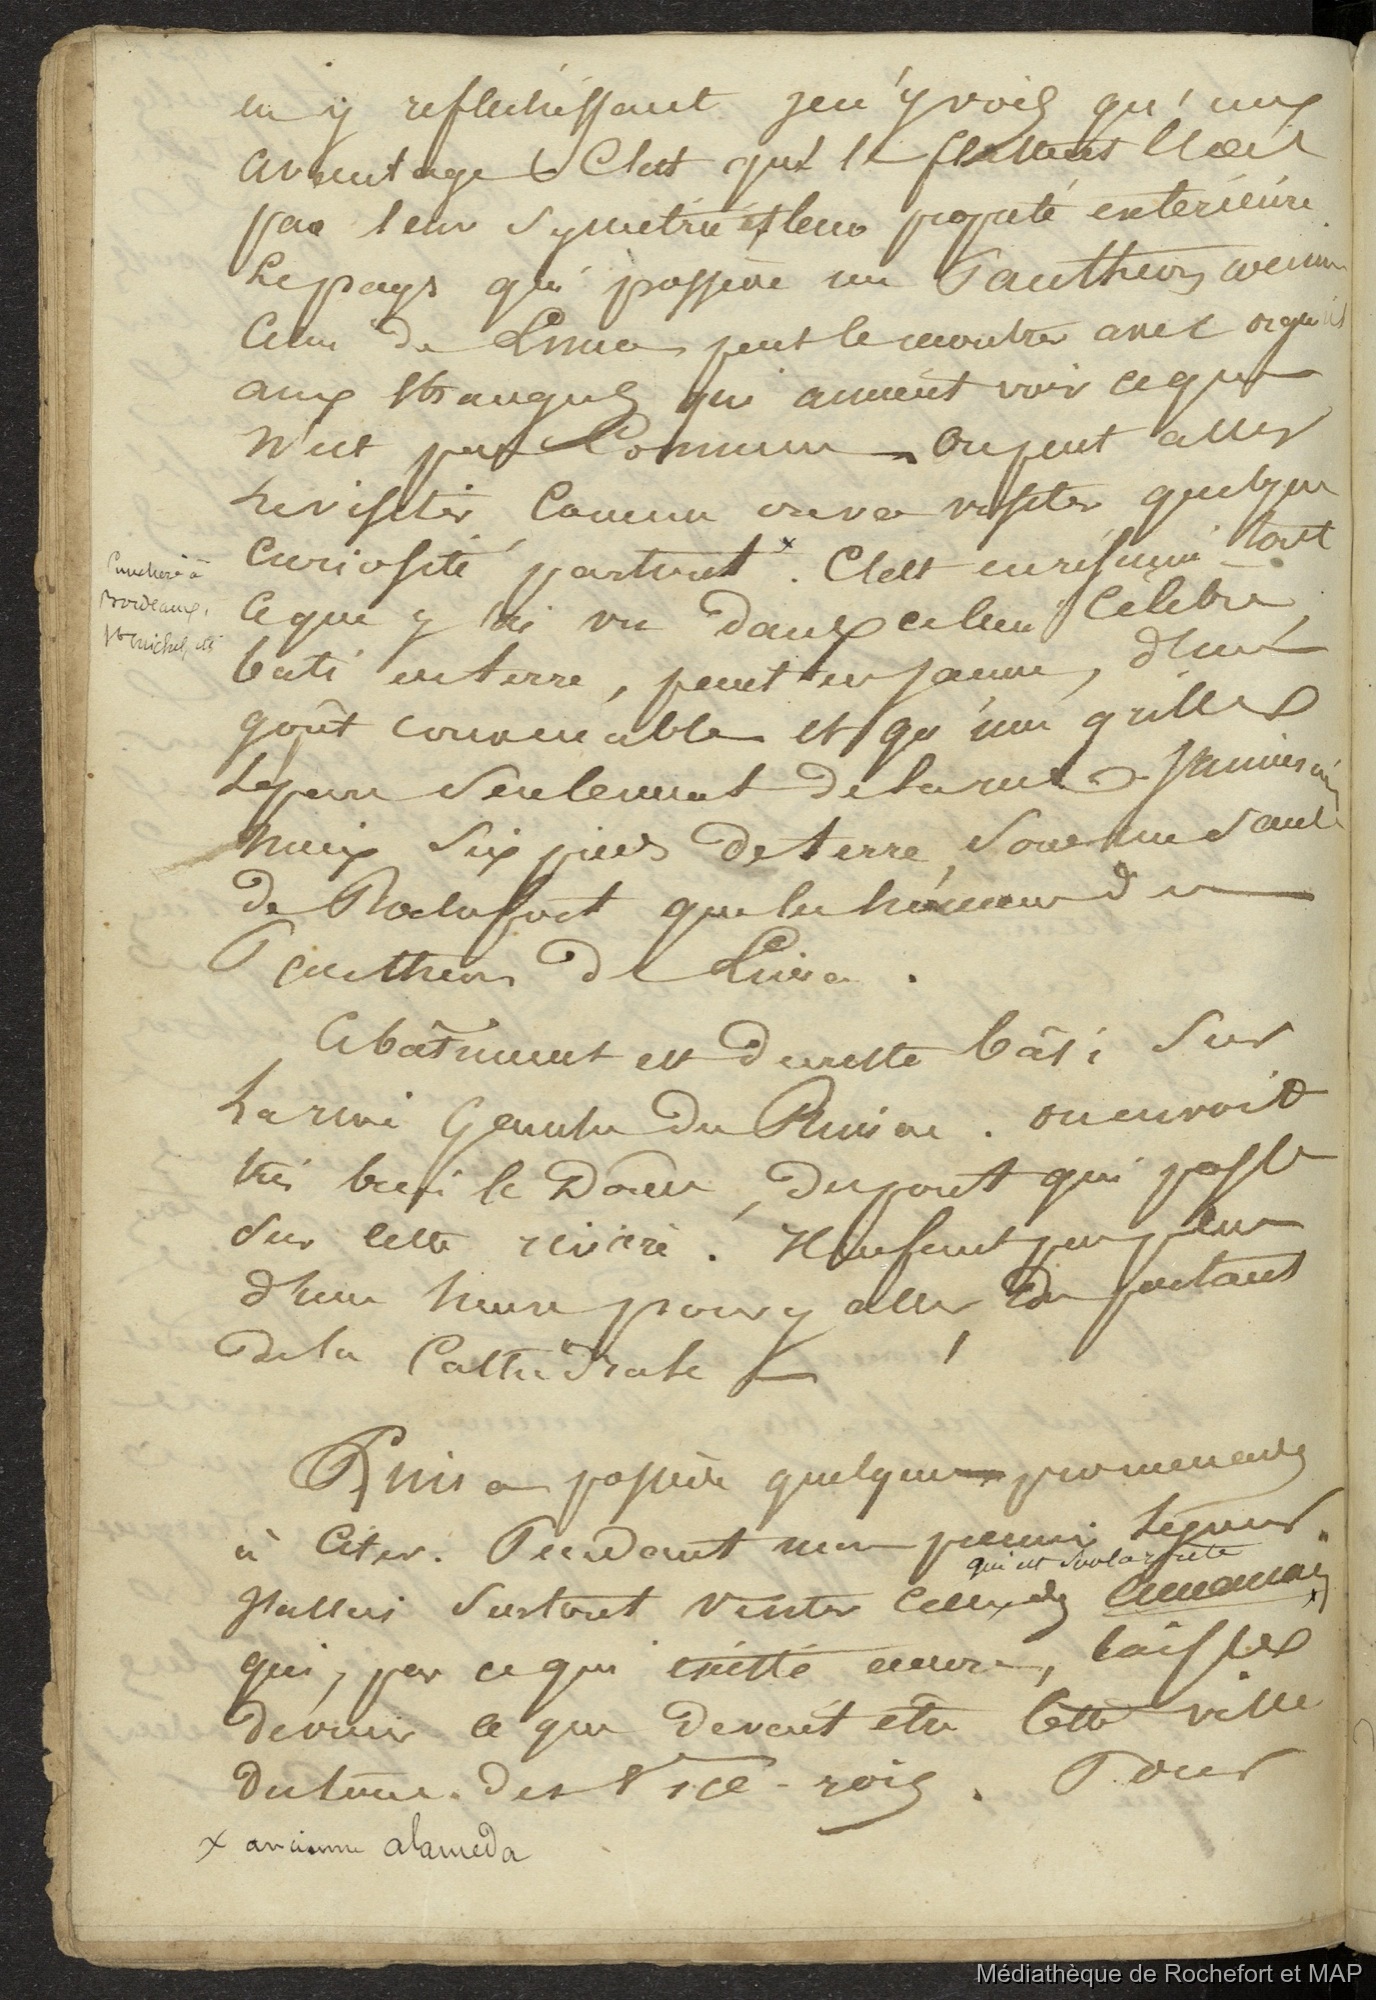 en y reflechissant je n'y vois qu'un
avantage C'est qu'ils flattent l'œil
par leur symetrie et leur propreté exterieure
Le pays qui possède un Panthéon comme
Celui de Lima peut le montrer avec orgueil
aux étrangers qui aiment voir ce qui
n'est pas Commun - On peut aller
le visiter Comme on va visiter quelque
Curiosité partout x. C'est en résumé tout
ce que j'ai vu dans ce lieu Célèbre
bati en terre, peint en jaune, d'un
goût convenable et qu'une grille
sépare seulement de la rue - J'aimerais
mieux six pieds de terre, sous un saule
de Rochefort que les honneurs du
Panthéon de Lima.
Ce bâtiment est du reste bâti sur
La rive gauche du Rimac. on en voit
très bien le Dôme, du pont qui passe
sur cette rivière. Il ne faut pas plus
d'une heure pour y aller, en partant
de la Cathédrale
Lima possède quelques promenades
à Citer. Pendant mon premier séjour
J'allais surtout visiter Celle des
qui est sur la
qui, par ce qui existe encore, laisse
deviner ce que devait être Cette ville
du tems des Vice-rois. Pour
x ancienne alameda
à
Bordeaux,
St michel
Médiathèque de Rochefort et MAP